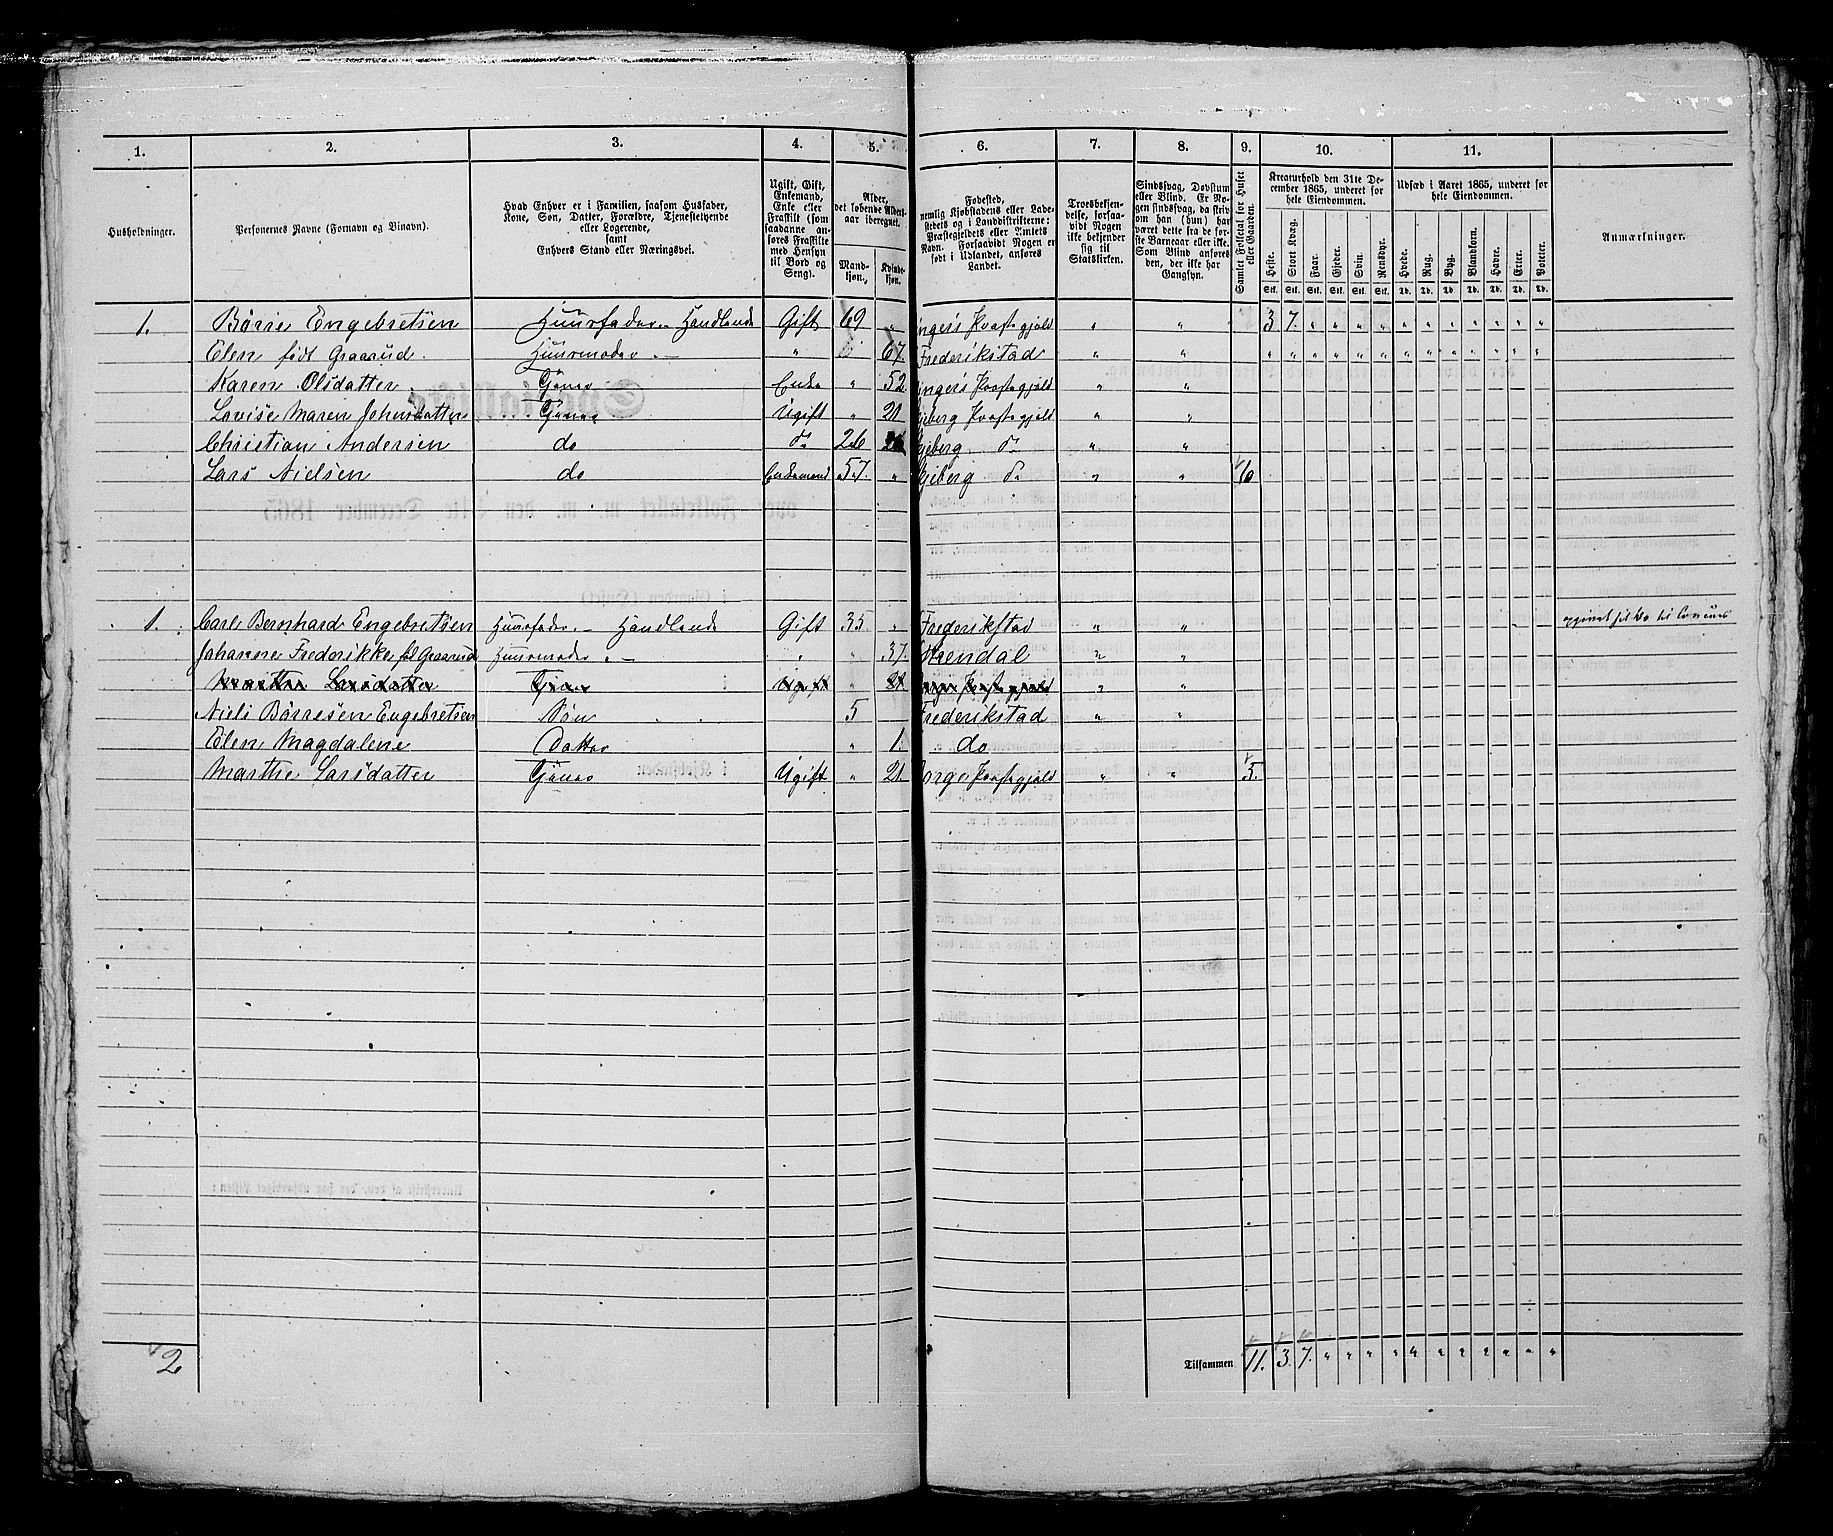 1. 2. 3. 4. 5. 6. 7. 8. 9. 10. 11.
Husholdninger.
Personernes Navne (Fornavn og Binavn).
Hvad Enhver er i Familien, saasom Husfader,
Kone, Søn, Datter, Forældre, Tjenestetyende
eller Logerende,
samt
Enhvers Stand eller Næringsvei.
Ugift, Gift,
Enkemand,
Enke eller
Fraskilt (som
saadanne an-
føres Fraskilte
med Hensyn
til Bord og
Seng).
Alder,
det løbende Alders-
aar iberegnet.
Mand-
kjøn.
Kvinde-
kjøn.
Fødested,
nemlig Kjøbstadens eller Lade-
stedets og i Landdistrikterne:
Præstegjeldets eller Amtets
Navn. Forsaavidt Nogen er
født i Udlandet, anføres
Landet.
Troesbekjen-
delse, forsaa-
vidt Nogen
ikke bekjender
sig til
Statskirken.
Sindssvag, Døvstum
eller Blind. Er No-
gen sindssvag, da skriv
om han (hun) har
været dette fra de før-
ste Barneaar eller ikke.
Som Blind anføres
den, der ikke har
Gangsyn.
Samlet Folketal for Huset
eller Gaarden.
Kreaturhold den 31te De-
cember 1865, underet for
hele Eiendommen.
Heste. Stort Kvæg. Faar. Gjeder. Svin. Rensdyr.
Stk. Stk. Stk. Stk. Stk. Stk.
Udsæd i Aaret 1865, underet for
hele Eiendommen.
Hvede. Rug. Byg. Blandkorn. Havre. Erter. Poteter.
Td. Td. Td. Td. Td. Td. Td.
Anmærkninger.
1. Börre Engebretsen Huusfader - Handlende Gift 69 " ingers Præstegjæld " " 3 7 " " " " " " " " " " "
Elen födt Graarud. Huusmoder - " " 67. Frederikstad " " " " " " " " " " " " " " "
Karen Olsdatter Tjener Enke " 52 ingers Præstegjæld " "
Lovise Maren Johnsdatter Tjener Ugift " 21 kjeberg Præstegjæld " "
Christian Andersen do do 26 kjeberg do " "
Lars Nielsen do Enkemand 57. " kjeberg do " " 6
1. Carl Bernhard Engebretsen Huusfader - Handlende Gift 35 " Frederikstad " "
Johanne Frederikke föd Graarud Huusmoder - " " 37. Arendal " "
Marthe Larsdatter Tjener Ugift " 21. Borge Præstegjæld " "
Niels Börresen Engebretsen Sön 5 Frederikstad " "
Elen Magdalene Datter " 1. do
Marthe Larsdatter Tjener Ugift " 21. Borge Præstegjæld " " 5.
2 Tilsammen 11. 3. 7. " " " " " " " " " " "